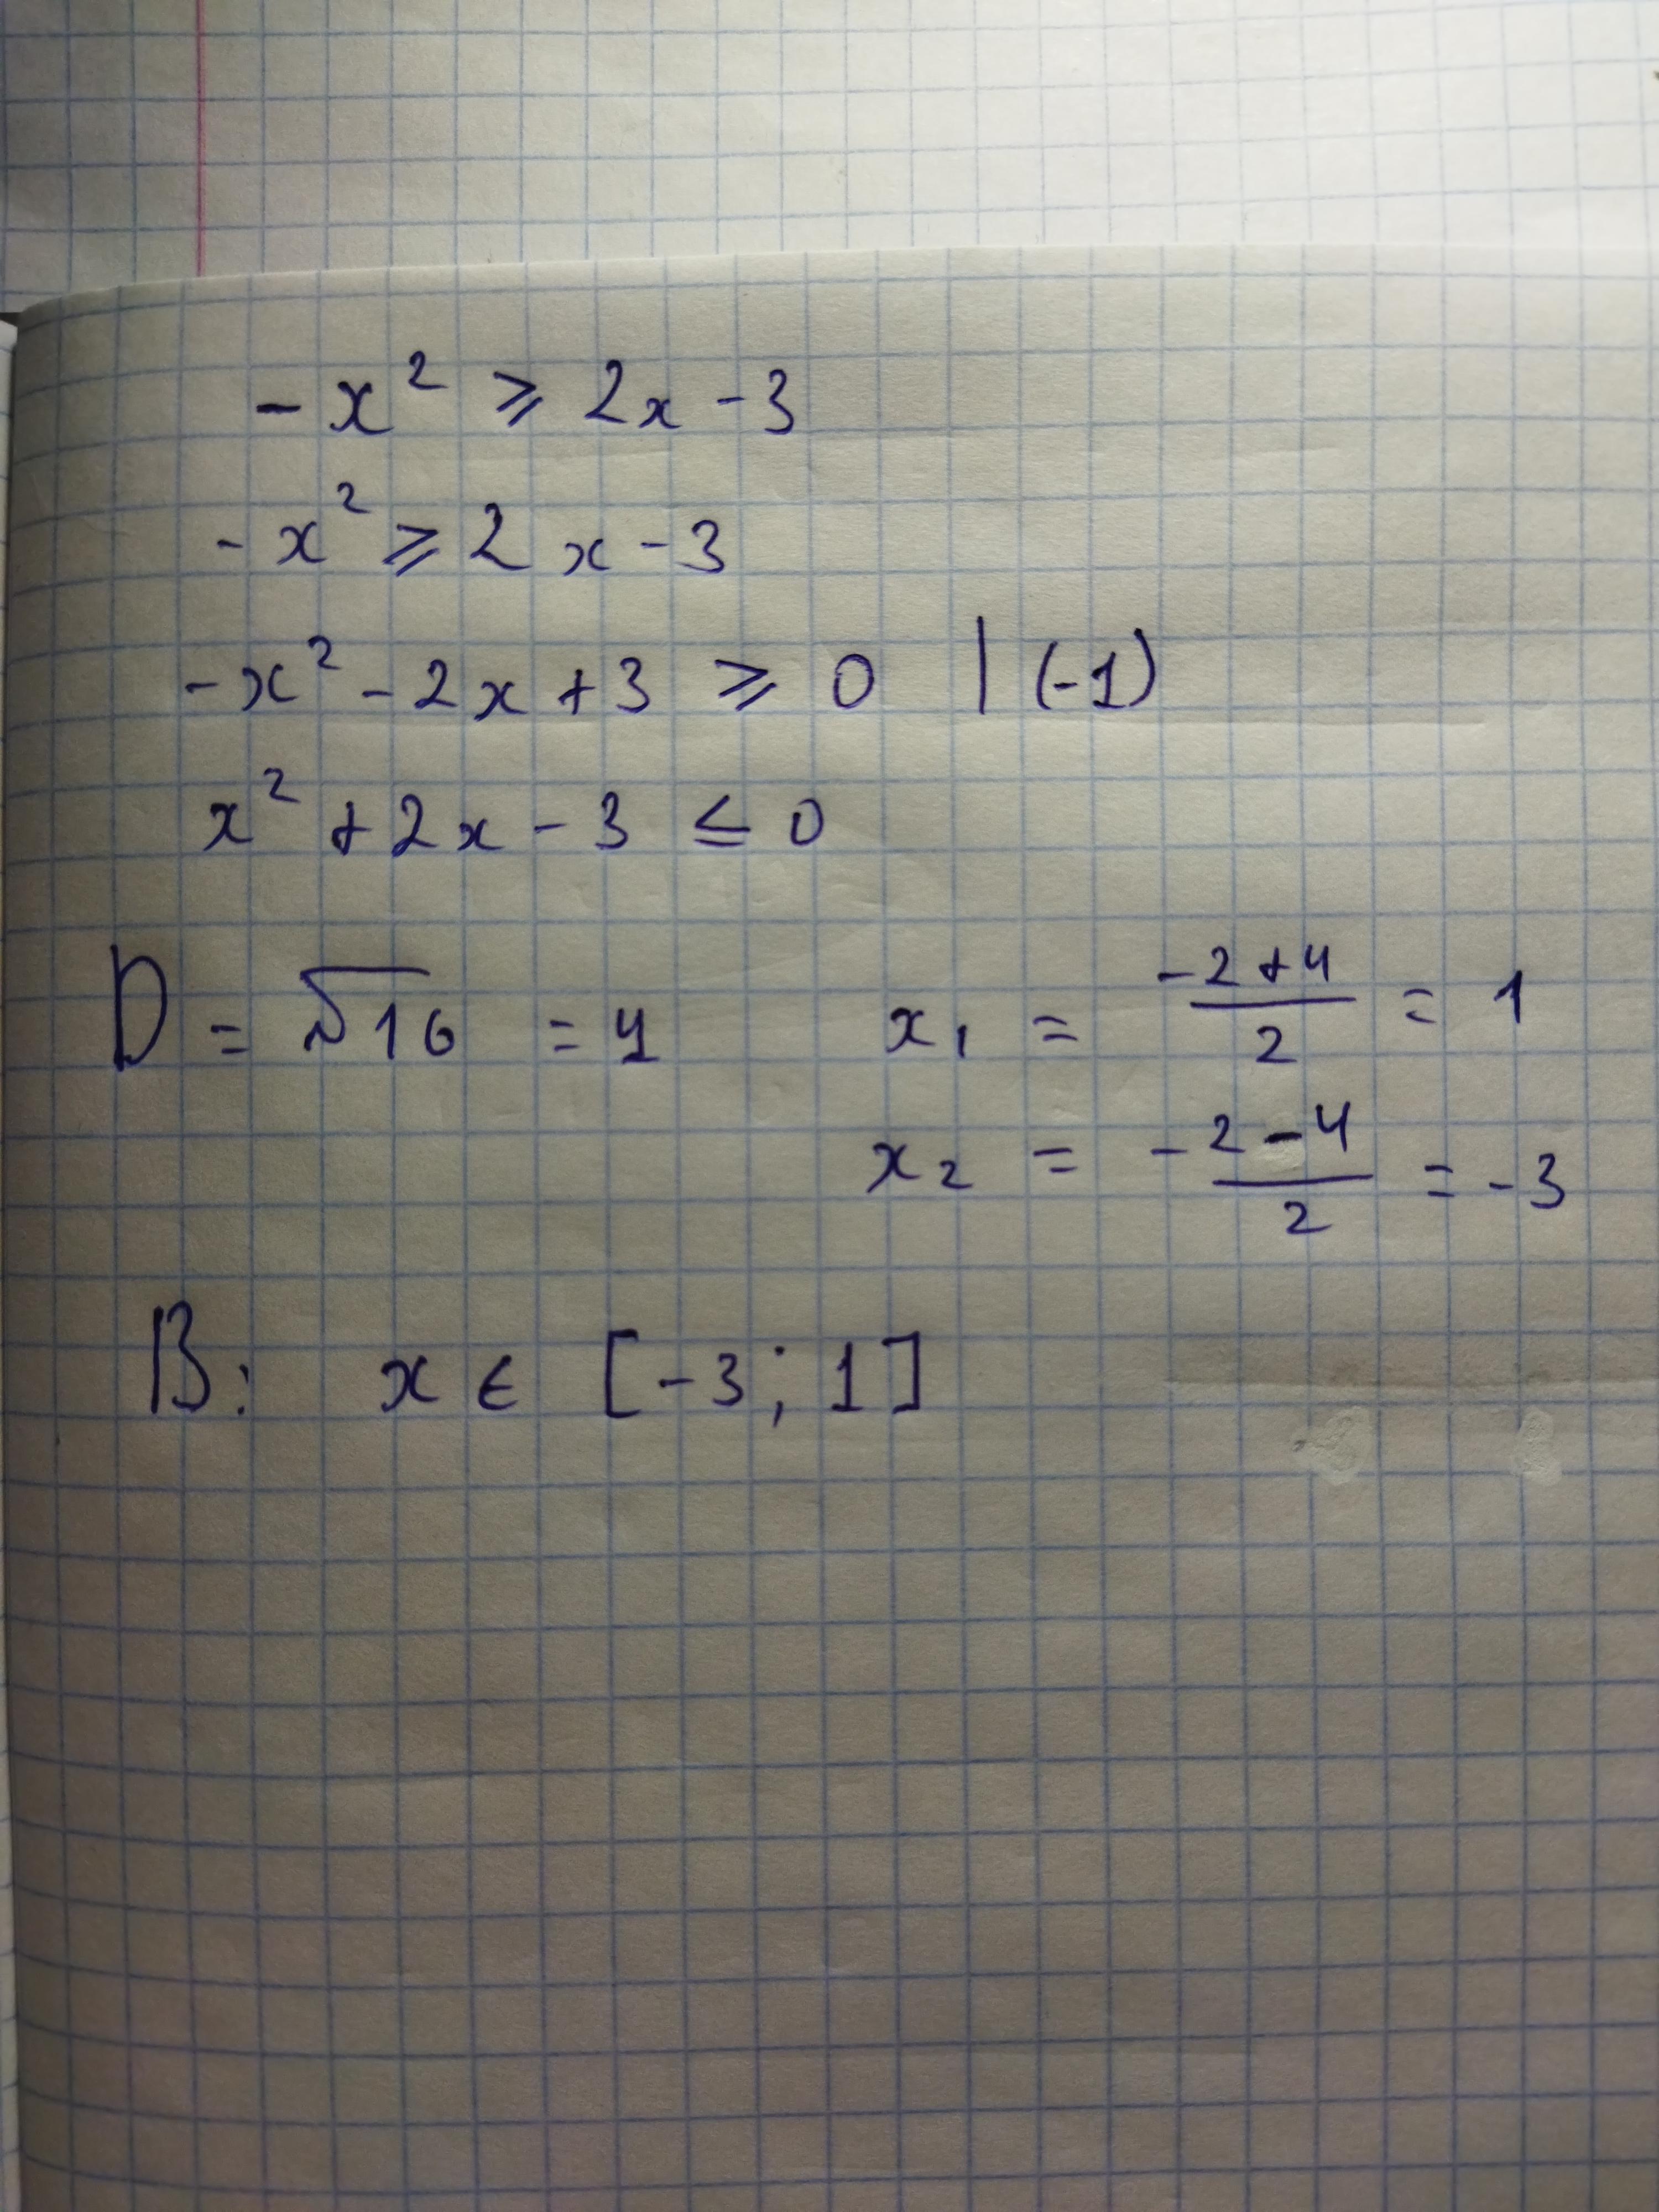 -x² ⩾ 2x - 3
-x² ⩾ 2x - 3
-x² - 2x + 3 ⩾ 0 | (-1)
x² + 2x - 3 ≤ 0
D = √16 = 4
x₁ = (-2+4)/2 = 1
x₂ = (-2-4)/2 = -3
В: x ∈ [-3; 1]